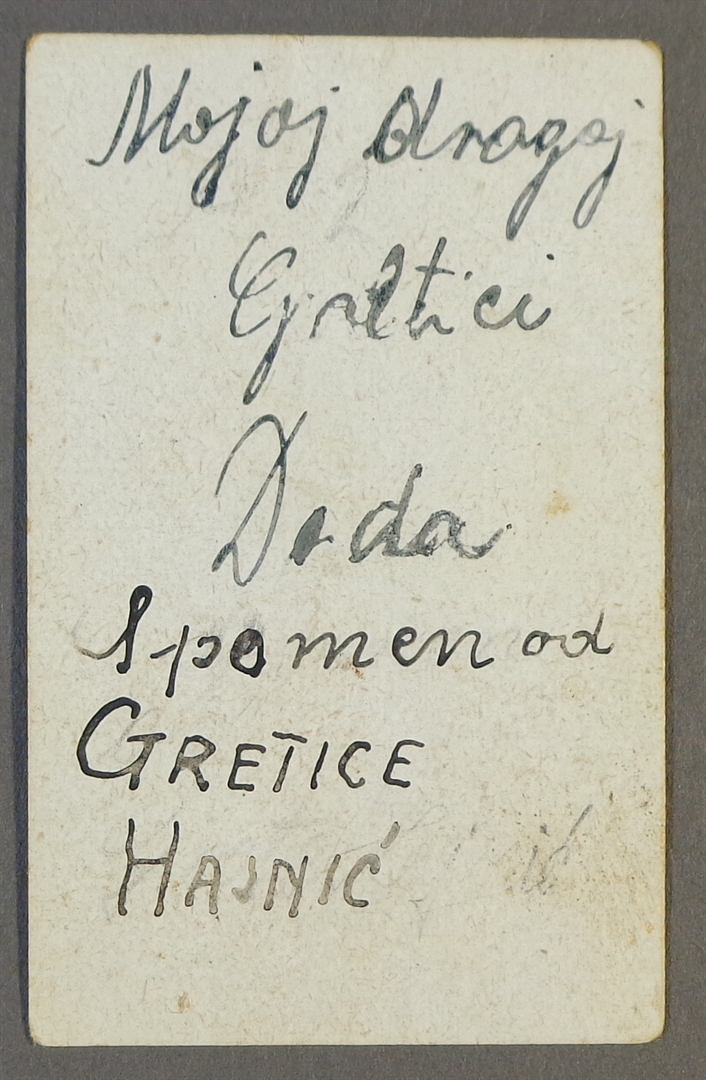 Mojoj dragoj
Gretici
Doda
Spomen od
GRETICE
HAJNIĆ